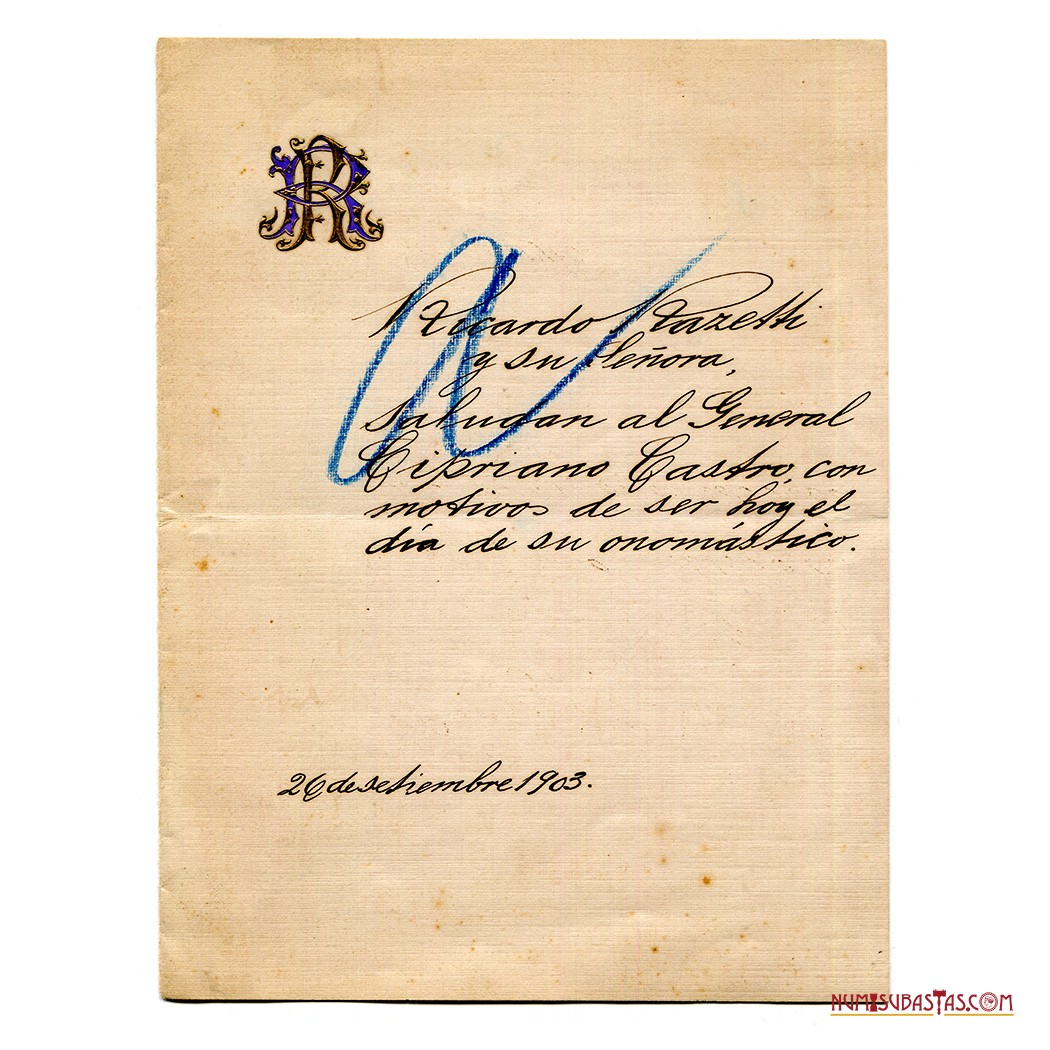 RR
Ricardo Razetti
y su Señora,
saludan al General
Cipriano Castro, con
motivos de ser hoy el
día de su onomástico.
26 de setiembre 1903.
NUMISUBASTAS.COM